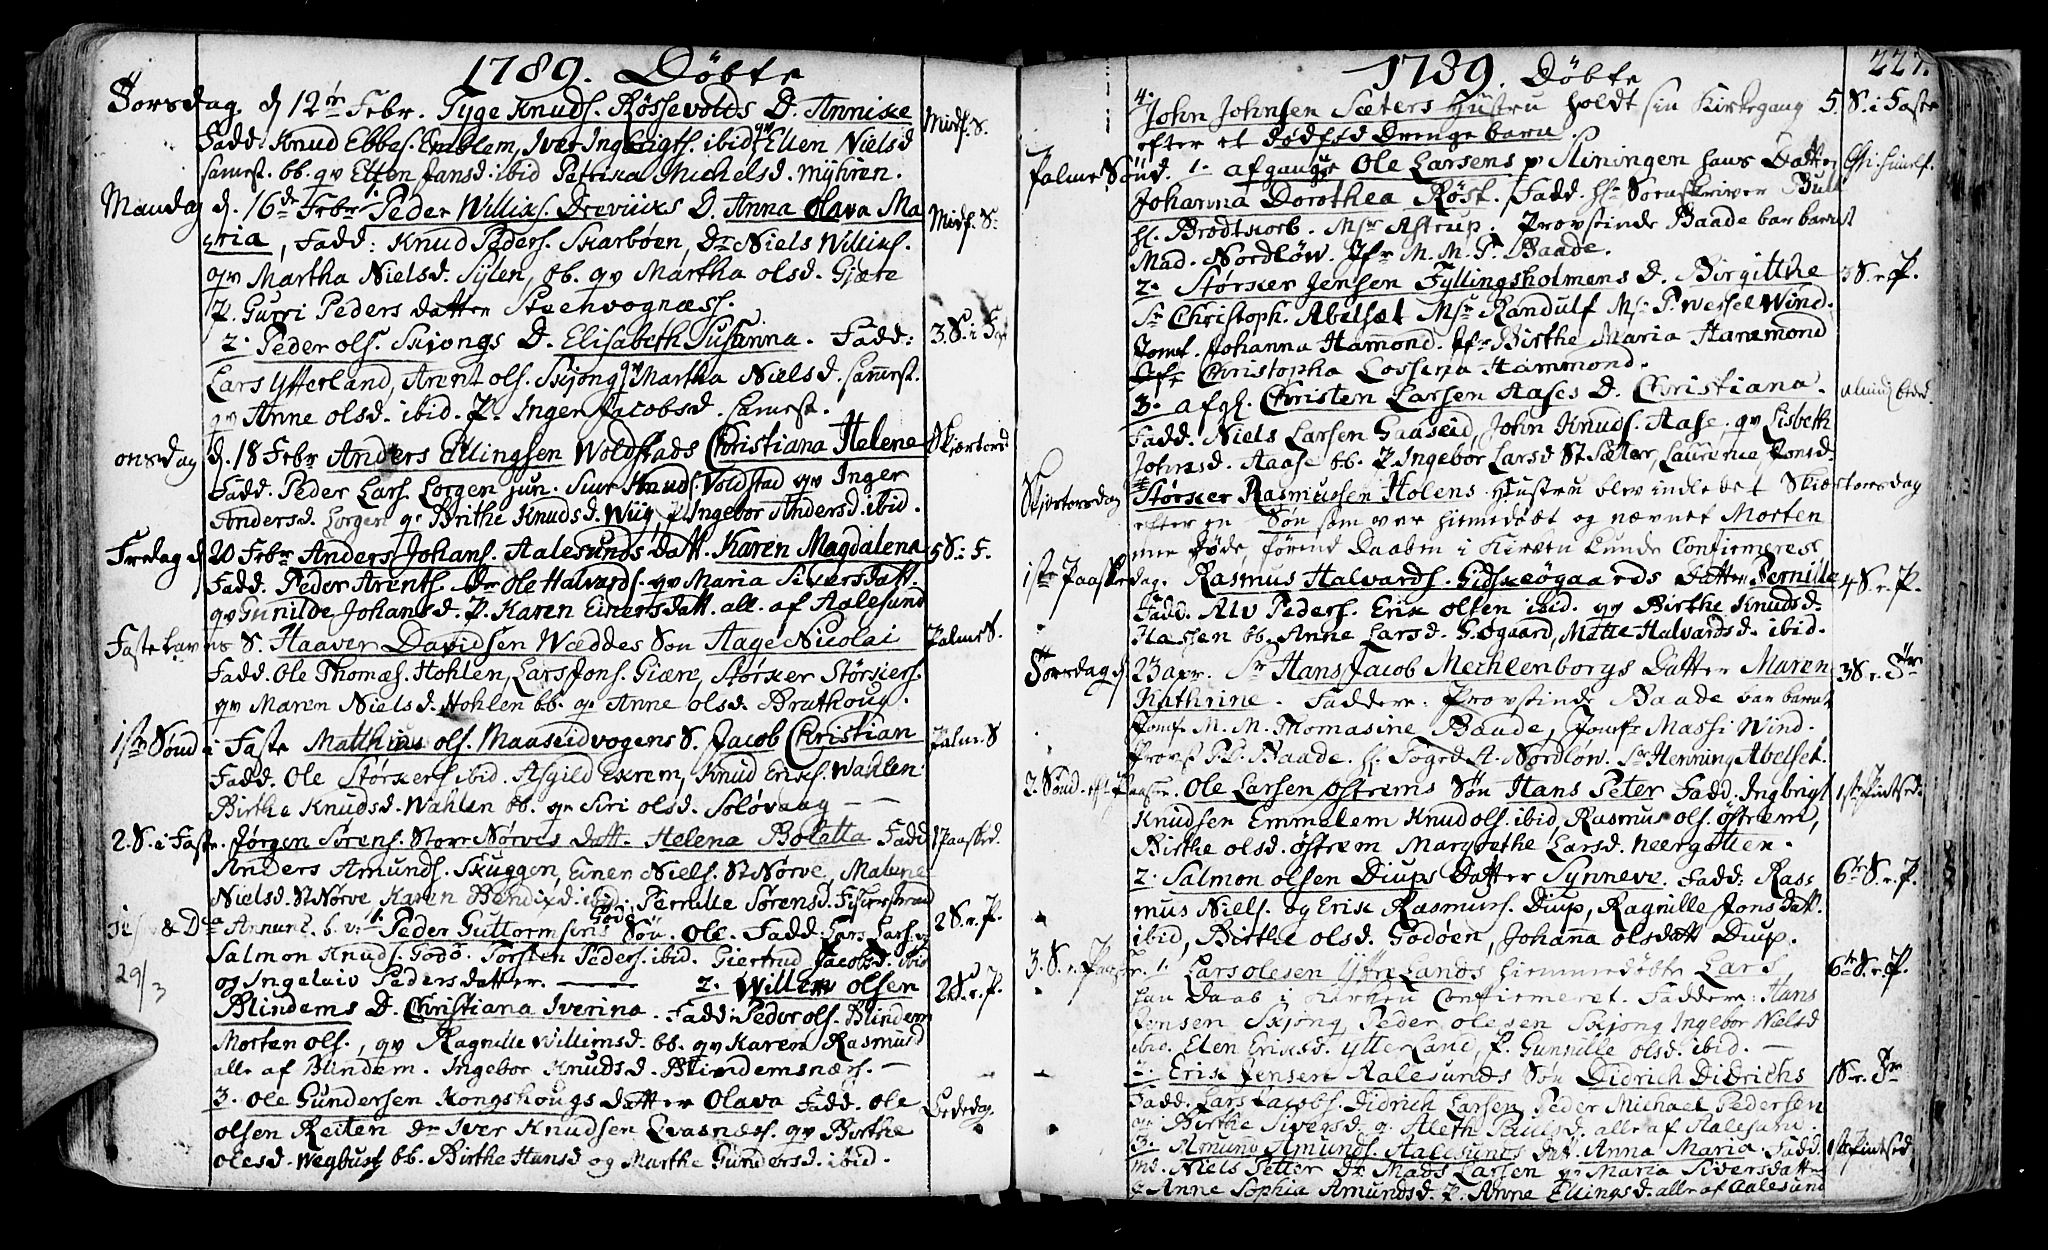 1789. Döbte
Torsdag. d 12te Febr. Tyge Knuds. Røssevolds D. Annike Midf. S.
Fadd. Knud Ebbes. Emblem, Iver Ingbrigts. ibid qv Ellen Nielsd
samest. bb. qv Ellen ibid Petrika Michelsd. Myhren.
Mandag d. 16de Febr 1. Peder Williks. Dreviiks D. Anna Olava Ma Midf. S.
gria, Fadd: Knud Peders. Skarbøen, Dr Niels Williks.
qv Martha Nielsd. Sylen, bb. qv Martha olsd. Gjære
P. Gurri Peders datter Steenvognæss.
2. Peder ols. Skjongs D. Elisabeth Susanna. Fadd: 3. S. i Fas
Lars Ytterland, Arent ols. Skjong qv Martha Nielsd. samest.
qv Anne olsd. ibid. P. Inger Jacobsd. samest.
onsdag d. 18 Febr Anders Ellingsen Woldstads Christiana Helene Skiærtorsd
Fadd. Peder Lars. Lorgen jun. Siur Knuds. Voldstad qv Inger
Andersd. Lorgen qv Brithe Knudsd. Wiig, P. Ingebor Andersd. ibid.
Fredag d 20 Febr Anders Johans. Aalesunds datt. Karen Magdalena 5 S. i F.
Fadd. Peder Arents. Dr Ole Halvards. qv Maria Siversdatt.
qv Gunilde Johansd. P. Karen Einersdatt. all. af Aalesund
Fastelavns S. Haaver Davidsen Wæddes Søn Aage Nicolai Palme S.
Fadd. Ole Thomæs. Hohlen, Lars Jons. Giære, Størker Størkers.
qv Maren Nielsd. Hohlen bb. qv Anne olsd. Brathoug.
1ste Sønd i Faste Matthius ols. Maaseidvogens S. Jacob Christian Palme S
Fadd. Ole Størkers. ibid. Asgild Exrem, Knud Eriks. Wahlen
Birthe Knudsd. Wahlen bb. qv Siri olsd. Soløvaag — —
2. S. i Faste. Jørgen Sørens. Store Nørves Datt. Helena Boletta Fadd 1 Paaskd.
Anders Amunds. Skuggen, Einer Niels. St Nørve, Malene
Nielsd. St Nørve Karen Bendixd. ibid. Pernille Sørensd. Fiskerstrand
& Da Annunc. b. v: 1. Peder Guttormsens Godøe Søn Ole. Fadd: Lars Lars. 2 S. e. P.
Salmon Knuds. Godø. Torsten Peders. ibid. Giertrud Jacobsd. ibid
29/3 og Ingelaiv Pedersdatter. —— 2. Willem olsen 2 S. e. P.
Blindems D. Christiana Iverina. Fadd: Peder ols. Blindem
Morten ols., qv Ragnille Willimsd. bb. qv Karen Rasmusd
alle af Blindem. Ingebor Knudsd. Blindemsnæss. —
3. Ole Gundersen Kongshougs Datter Olava Fadd. Ole Bededag.
olsen Reiten Dr Iver Knudsen Qvasnæss. qv Birthe
olesd. Wegbust bb. Birthe Hansd og Marthe Gundersd. ibid.
1789. Döbte 227.
4. John Johnsen Sæters Hustru holdt sin Kirkegang 5. S. i Faste
efter et dødfød drengebarn.
Palme Sönd. 1. afgangne Ole Larsens p Slinningen hans Datter
Johanna Dorothea Røst. Fadd. Hr Sorenskriver Bull
Hr. Brodtkorb. Msr Astrup. Provstinde Baade bar barnet
Mad. Nordløw. Jfr M. M. P. Baade.
2. Størker Jensen Fyllingsholmens D. Birgitthe 3 S. e. P.
Sr Christoph. Abelsæt Msr Randulf Msr P. Wessel Wind.
Jomf. Johanna Hamond. Jfr Birthe Maria Hammond
Jfr Christopha Lossena Hammond.
3. afg. Christen Larsen Aases D. Christiana. almind. Beded.
Fadd. Niels Larsen Gaaseid, John Knuds. Aase, qv Lisbeth
Johnsd. Aase bb. P. Ingebor Larsd St Sæter, Laurene Jonsd.
Skjertorsdag Størker Rasmussen Holens Hustru blev indledet Skiærtorsdag
efter en Søn som var hiemedøbt og nævnet Morten
men døde, førend Daaben i Kirken kunde Confirmeres
1ste Paaskedag. Rasmus Halvards. Gidskeøgaards Datter Pernille 4 S. e. P.
Fadd. Alv Peders. Erik olsen ibid. qv Birthe Knudsd.
Hassen bb. Anne Larsd. G.øgaard, Mette Halvardsd. ibid.
Torsdag d. 23 apr. Sr Hans Jacob Mechlenborgs Datter Maren 3 S. e. Tr
Kathrine. Faddere: Provstinde Baade bar barnet
Jomf. M. M. Thomasine Baade, Jomfr Massi Wind.
Provst P. D. Baade. Hr. Fogd A. Nordløw. Sr Henning Abelset.
2. Sønd. eft Paaske. Ole Larsen Østrems Søn Hans Peter Fadd. Ingbrigt 1ste Pintsed.
Knudsen Emmelem Knud ols. ibid Rasmus ols. Østrem,
Birthe olsd. Østrem Margrethe Larsd. Neergotten.
2. Salmon olsen Diups Datter Synneve. Fadd: Ras= 6te S. e. P.
mus Niels. og Erik Rasmus. Diup, Ragnille Jonsdatt.
ibid, Birthe olsd. Godøen, Johanna olsdatt Diup.
3. S. e. Paaske. 1. Lars olesen Ytterlands hiemmedøbte Lars, 6te S. e. P.
han Daab i Kirken Confirmeret. Faddere: Hans
Jensen Skjong Peder olesen Skjong Ingebor Nielsd
ibid. Elen Eriksd. Ytterland, P. Gunnille olsd. ibid. —
2. Erik Jensen Aalesunds Søn Didrich Didrichs 1 S. e. Tr
Fadd. Lars Jacobs. Didrich Larsen, Peder Michael Pedersen
qv Birthe Siversd. q. Aleth Paulsd. alle af Aalesund.
3. Amund Amunds. Aalesunds dat. Anna Maria Fadd. 1ste Pintsed
Niels Petter Dr Mads Larsen qv Maria Siversdatter
Anne Sophia Amundsd. P. Anne Ellingsd. alle af Aalesund